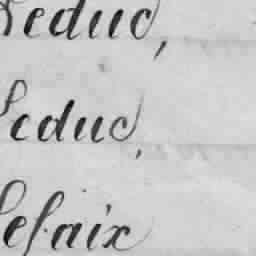 Leduc,
Leduc,
Lefaix